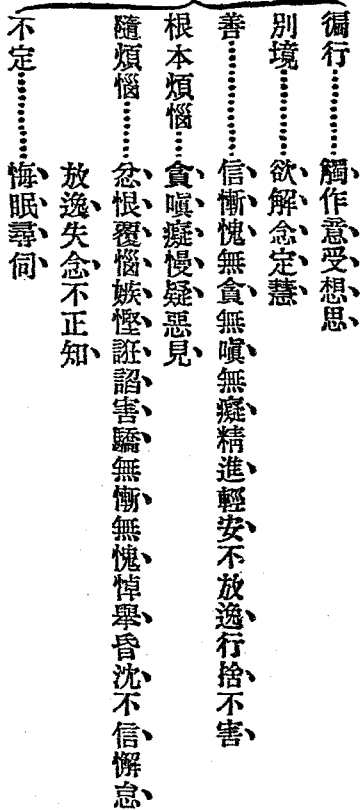 徧行…………觸、作意、受、想、思、
別境…………欲、解、念、定、慧、
善……………信、慚、愧、無貪、無嗔、無癡、精進、輕安、不放逸、行捨、不害、
根本煩惱……貪、嗔、癡、慢、疑、惡見、
隨煩惱………忿、恨、覆、惱、嫉、慳、誑、諂、害、驕、無慚、無愧、悼舉、昏沈、不信、懈怠、
放逸、失念、不正知、
不定…………悔、眠、尋、伺、